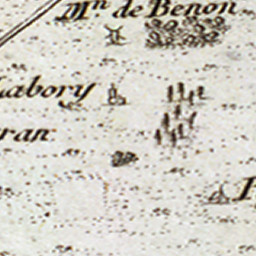 Mn de Benon
Labory
ran